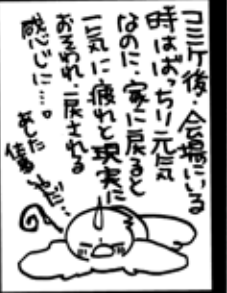 コミケ後・会場にいる
時はばっちり元気
なのに、家に戻ると
一気に疲れと現実に
おそわれ、戻される
感じに…。
あした
仕事やだ…